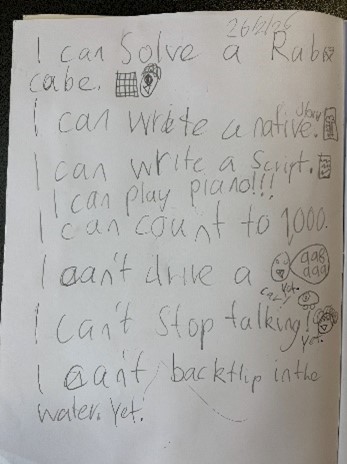 26/2/26
I can Solve a Rabix
cabe.
story
I can write a native.
I can write a Script.
I can play piano!!!
I can count to 1,000.
I can't drive a
gag
daa
car! Yet.
I can't Stop talking!
Yet.
I can't backflip in the
water. Yet!